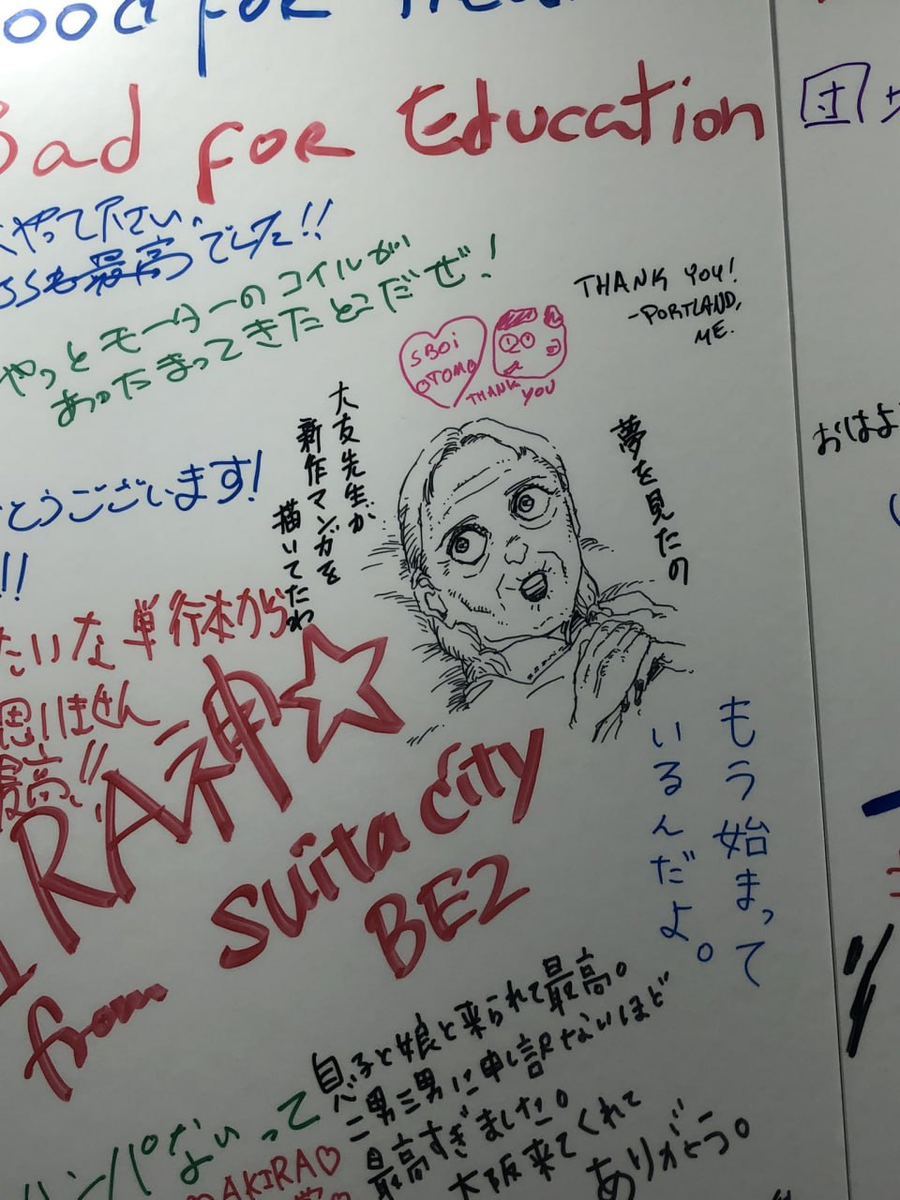 ood for
Bad for Education
やって下さい。
SSも最高でした!!
やっとモーターのコイルが
あったまってきたとこだぜ!
THANK YOU!
-PORTLAND,
ME.
SBOi
OTOMO
THANK
YOU
夢を見たの
大友先生が
新作マンガを
描いてたわ
とうございます!
!!
たいな単行本から
思いません
最高!!
IRA神☆
from suita city
BE2
もう始まって
いるんだよ。
息子と娘と来られて最高。
二男三男に申し訳ないほど
最高すぎました。
大阪来てくれて
ありがとう。
ハンパないって
♡AKIRA♡
団
おはよ